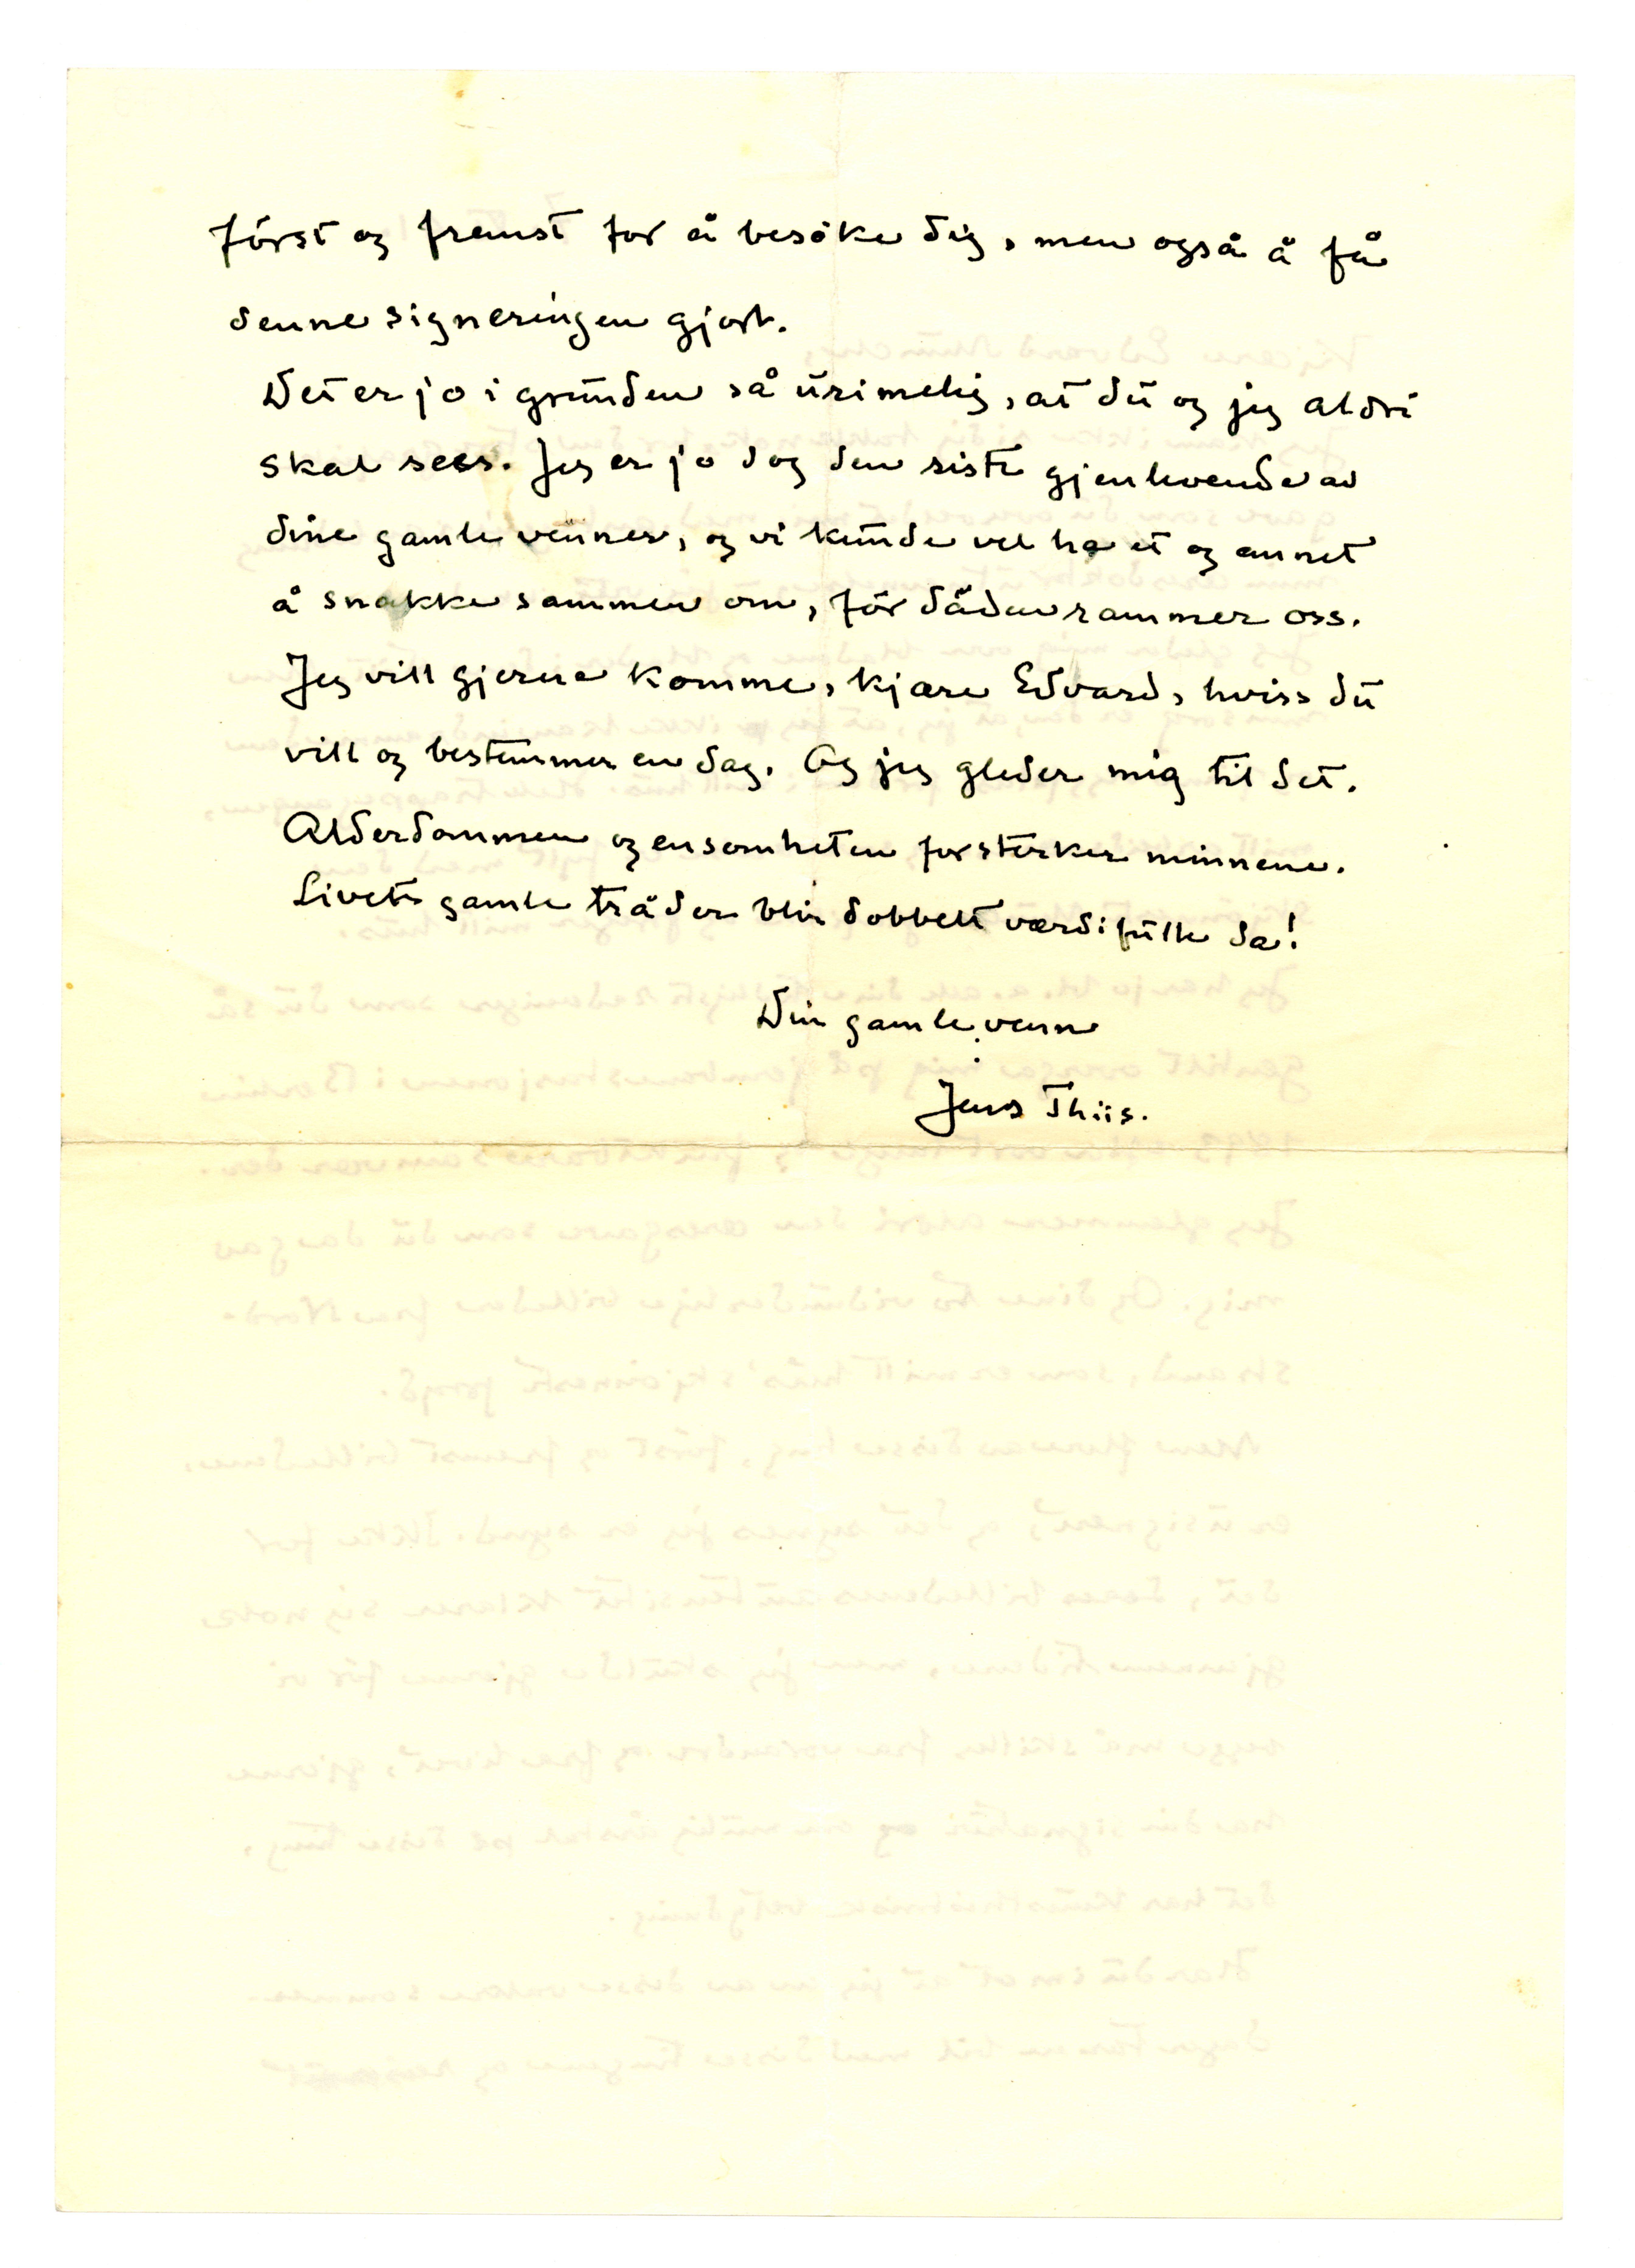 först og fremst for å besöke dig, men også å få
denne signeringen gjort.
Det er jo i grunden så urimelig, at du og jeg aldri
skal sees. Jeg er jo dog den siste gjenlevende av
dine gamle venner, og vi kunde vel ha et og annet
å snakke sammen om, för döden rammer oss.
Jeg vill gjerne komme, kjære Edvard, hviss du
vill og bestemmer en dag. Og jeg gleder mig til det.
Alderdommen og ensomheten forsterker minnene.
Livets gamle tråder blir dobbelt værdifulle da!
Din gamle venn
Jens Thiis.